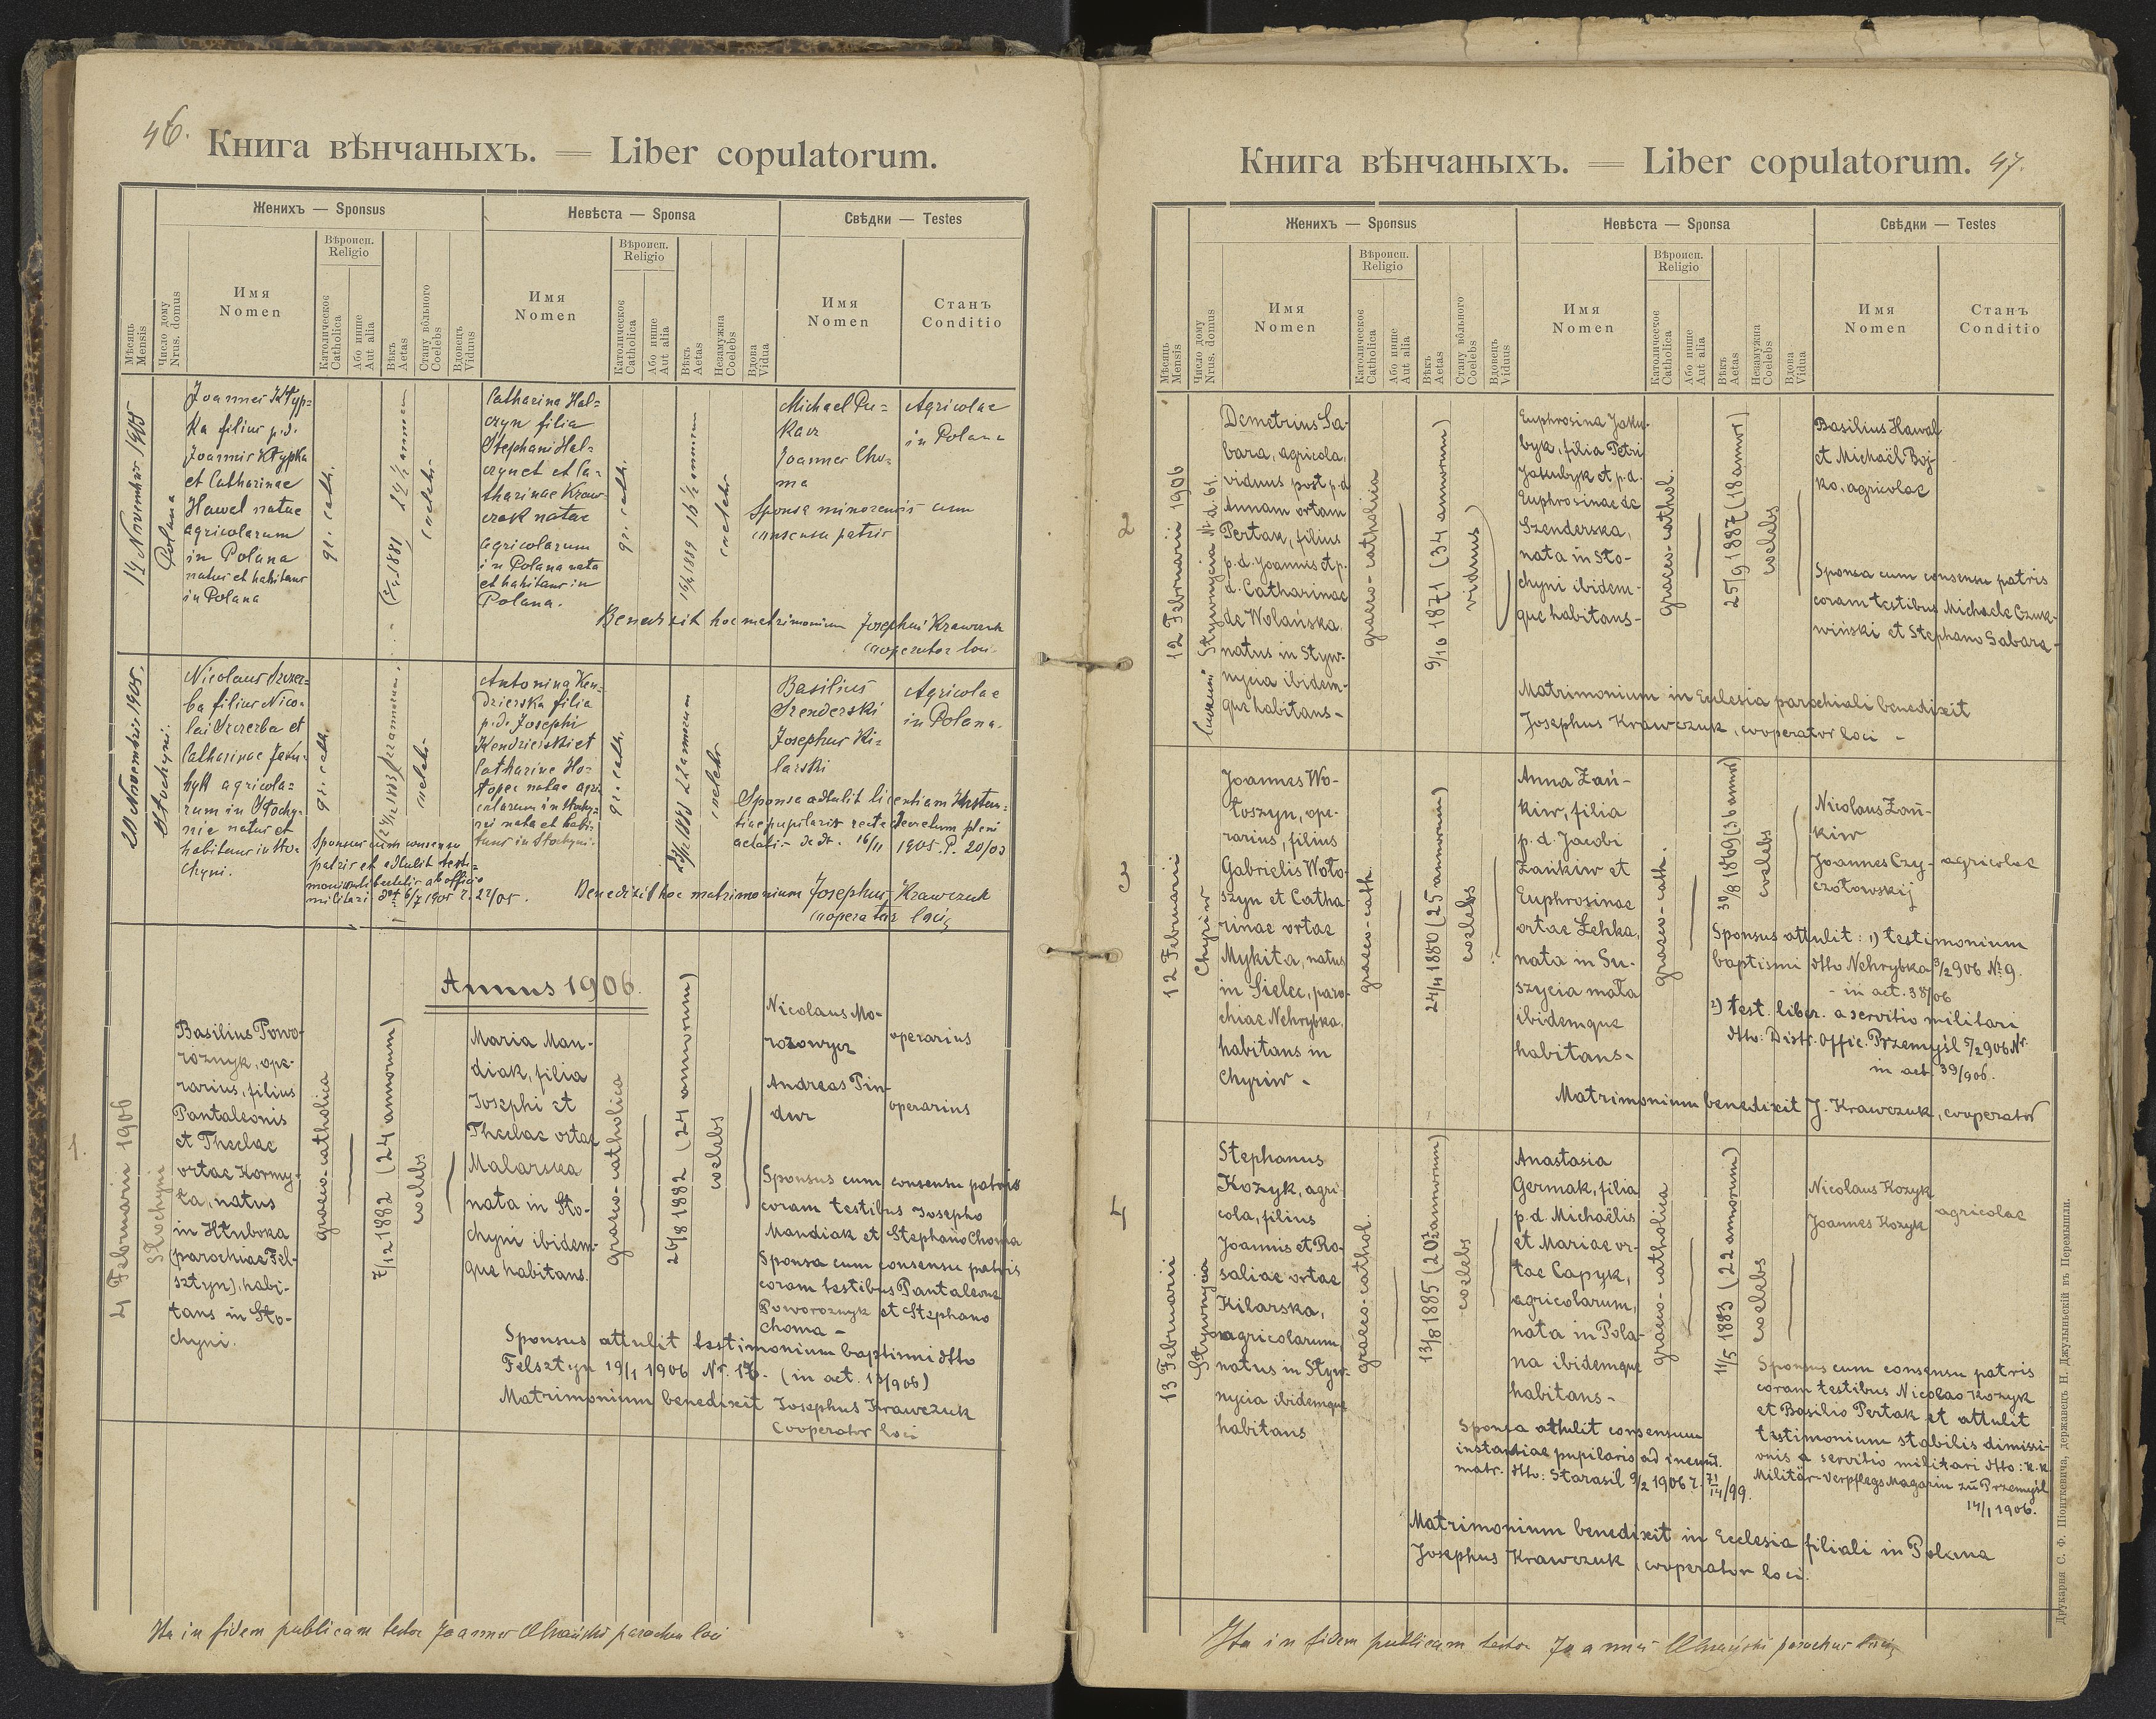 46.
Книга вѣнчаныхъ. = Liber copulatorum.
Женихъ — Sponsus
Невѣста — Sponsa
Свѣдки — Testes
Мѣсяць
Mensis
Число дому
Nrus. domus
Имя
Nomen
Вѣроисп.
Religio
Католическое
Catholica
Або инше
Aut alia
Вѣкъ
Aetas
Стану вôльного
Coelebs
Вдовець
Viduus
Имя
Nomen
Вѣроисп.
Religio
Католическое
Catholica
Або инше
Aut alia
Вѣкъ
Aetas
Незамужна
Coelebs
Вдова
Vidua
Имя
Nomen
Станъ
Conditio
14 November 1905
Polana
Joannes Kłyp=
ka filius p.d.
Joannis Kłypka
et Catharinae
Hawel natae
agricolarum
in Polana
natus et habitans
in Polana
gr. cath.
1881 24 ½ annorum
coelebs
Catharina Hal=
czyn filia
Stephani Hal=
et Ca=
tharinae Kraw=
czak natae
agricolarum
in Polana nata
et habitans in
Polana.
gr. cath.
1889 16 ½ annorum
coelebs
Michael Pu=
kacz
Joannes Cho=
ma
Agricolae
in Polana
Sponsa minorennis cum
consensu patris
Benedixit hoc matrimonium Josephus Krawczuk
cooperator loci
20 Novembris 1905.
Stochyni.
Nicolaus Szczer=
ba filius Nico=
lai Szczerba et
Catharinae
agricola=
rum in Stochy=
nie natus et
habitans in Sto=
chyni.
gr. cath.
coelebs
Sponsus cum consensu
patris et adtulit testi=
monium libertatis ab officio
militari
Antonina Ken=
dzierska filia
p.d. Josephi
Kendzierski et
Catharine Ho=
łopec natae agri
colarum in Stochy=
ni nata et habi=
tans in Stochyni.
gr. cath.
annorum
coelebs
Basilius
Szenderski
Josephus Ki=
larski
Agricolae
in Polana.
Sponsa adtulit licentiam Instan=
tiae pupilaris recte decretum pleni
aetatis de dt. 16/11 1905. P. 20/05
Benedixit hoc matrimonium Josephus Krawczuk
cooperator loci
Annus 1906.
1.
4 Februarii 1906
Stochyni
Basilius Powo-
roznyk, ope-
rarius, filius
Pantaleonis
et Theclae
ortae Kormy-
ła, natus
in Hłuboka
(parochiae Fel-
sztyn), habi-
tans in Sto-
chyni.
graeco-catholica
7/12 1882 (24 annorum)
coelebs
Maria Man-
diak, filia
Josephi et
Theclae ortae
Malarska
nata in Sto-
chyni ibidem-
que habitans.
graeco-catholica
26/8 1882 (24 annorum)
coelebs
Nicolaus Mo-
rozowycz
operarius
Andreas Tin-
dur
operarius
Sponsus cum consensu patris
coram testibus Josepho
Mandiak et Stephano Choma
Sponsa cum consensu patris
coram testibus Pantaleone
Poworoznyk et Stephano
Choma -
Sponsus attulit testimonium baptismi dtto
Felsztyn 19/1 1906 Nr. 17. (in act. 13/906)
Matrimonium benedixit Josephus Krawczuk
Cooperator loci
Ita in fidem publicam testor Joannes parochus loci
Книга вѣнчаныхъ. = Liber copulatorum.
47.
Женихъ — Sponsus
Невѣста — Sponsa
Свѣдки — Testes
Мѣсяць
Mensis
Число дому
Nrus. domus
Имя
Nomen
Вѣроисп.
Religio
Католическое
Catholica
Або инше
Aut alia
Вѣкъ
Aetas
Стану вôльного
Coelebs
Вдовець
Viduus
Имя
Nomen
Вѣроисп.
Religio
Католическое
Catholica
Або инше
Aut alia
Вѣкъ
Aetas
Незамужна
Coelebs
Вдова
Vidua
Имя
Nomen
Станъ
Conditio
2
12 Februarii 1906
Stywnycia Nr d. 61.
Demetrius Sa-
bara, agricola,
viduus post p.d.
Annam ortam
Pertak, filius
p.d. Joannis et p.
d. Catharinae
de Wolańska,
natus in Styw-
nycia ibidem-
que habitans -
graeco-catholica
9/10 1871 (34 annorum)
viduus
Euphrosina Jaku-
byk, filia Petri
Jakubyk et p.d.
Euphrosinae de
Szenderska,
nata in Sto-
chyni ibidem-
que habitans -
graeco-cathol.
25/9 1887 (18 annor)
coelebs
Basilius Hawał
et Michaël Boj-
ko, agricolae
Sponsa cum consensu patris
coram testibus Michaele Czuk-
wiński et Stephano Sabara -
Matrimonium in Ecclesia parochiali benedixit
Josephus Krawczuk, cooperator loci -
3
12 Februarii
Chyriw
Joannes Wo-
łoszyn, ope-
rarius, filius
Gabrielis Woło-
szyn et Catha-
rinae ortae
Mykita, natus
in Sielec, paro-
chiae Nehrybka,
habitans in
Chyriw -
graeco-cath.
24/4 1880 (25 annorum)
coelebs
Anna Zań-
kiw, filia
p.d. Jacobi
Zańkiw et
Euphrosinae
ortae Łehka,
nata in Su-
szycia mała
ibidemque
habitans -
graeco-cath.
30/8 1869 (36 annor)
coelebs
Nicolaus Zań-
kiw
Joannes Czy-
czołowskij
agricolae
Sponsus attulit: 1) testimonium
baptismi dtto Nehrybka 3/2 906 Nr 9.
- in act. 38/06
2) test. liber. a servitio militari
dtto: Distr. Offic. Przemyśl 5/2 906 Nr.
in act. 39/906.
Matrimonium benedixit J. Krawczuk, cooperator
4
13 Februarii
Stywnycia
Stephanus
Kozyk, agri-
cola, filius
Joannis et Ro-
saliae ortae
Kilarska,
agricolarum
natus in Styw-
nycia ibidemque
habitans
graeco-cathol.
13/8 1885 (20½ annorum)
coelebs
Anastasia
Germak, filia
p.d. Michaëlis
et Mariae or-
tae Capyk,
agricolarum,
nata in Pola-
na ibidemque
habitans -
graeco-catholica
11/5 1883 (22 annorum)
coelebs
Nicolaus Kozyk
Joannes Kozyk
agricolae
Sponsus cum consensu patris
coram testibus Nicolao Kozyk
et Basilio Pertak et attulit
testimonium stabilis dimissi-
onis a servitio militari dtto: k.k.
Militär-Verpflegs Magazin zu Przemyśl
14/1 1906.
Sponsa attulit consensum
instantiae pupilaris ad ineund.
matr. dtto: Starasil 9/2 1906
Matrimonium benedixit in Ecclesia filiali in Polana
Josephus Krawczuk, cooperator loci.
Ita in fidem publicam testor Joannes parochus loci
Друкарня С. Ф. Піонткевича, державецъ Н. Джулыньскій въ Перемышли.